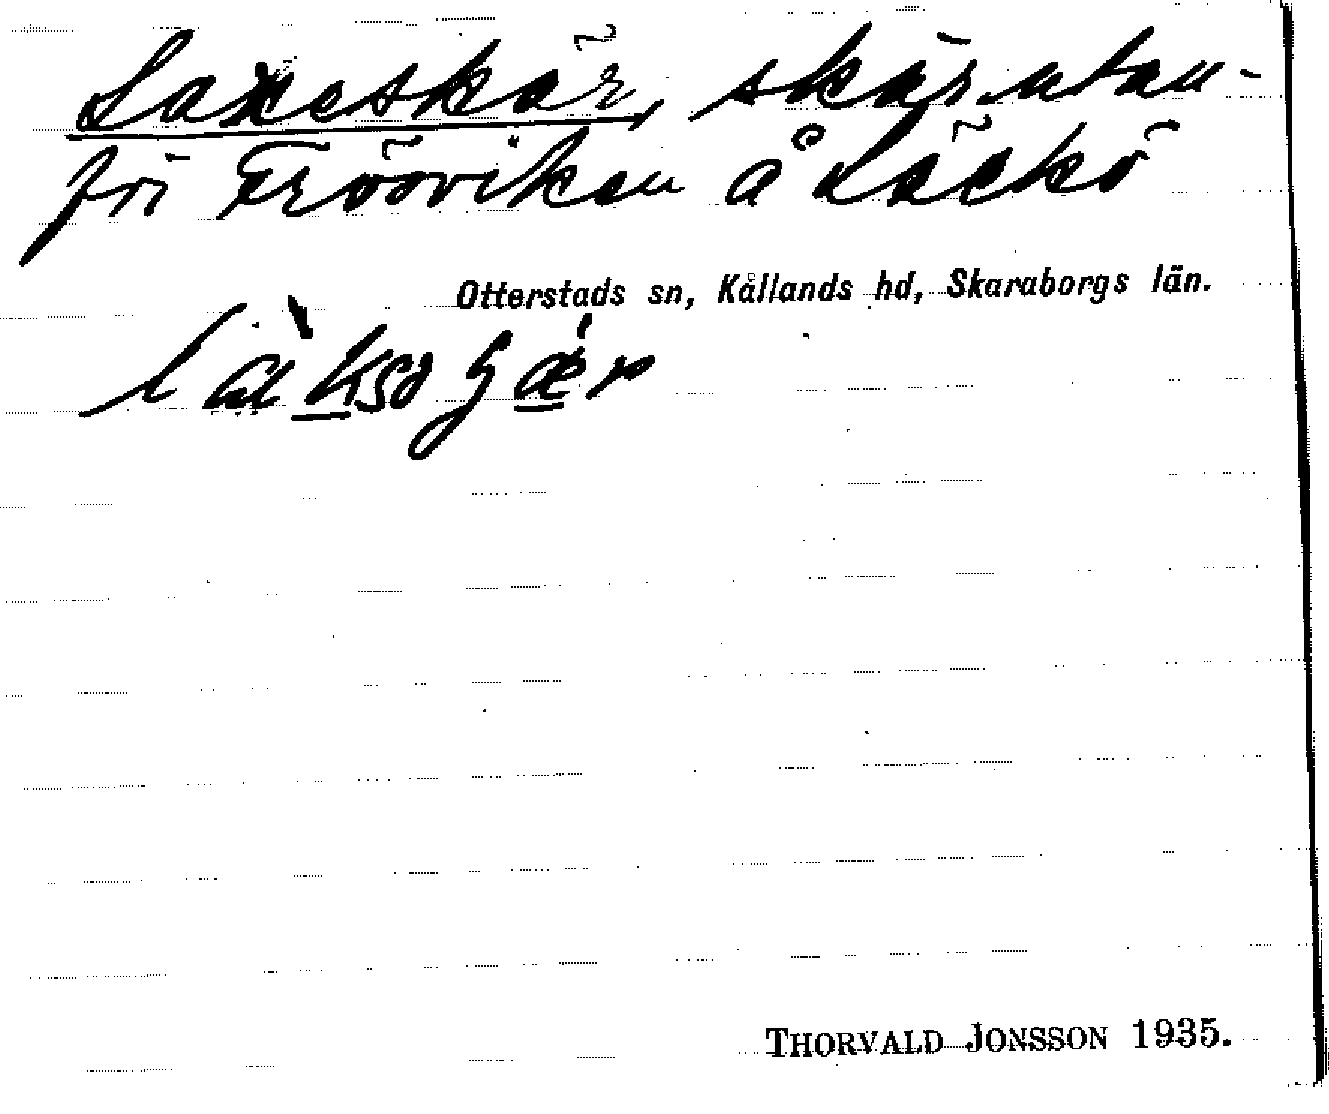 Laxeskär, skär utan-
för Frööviken å Läckö
Otterstads sn, Kållands hd, Skaraborgs län.
THORVALD JONSSON 1935.